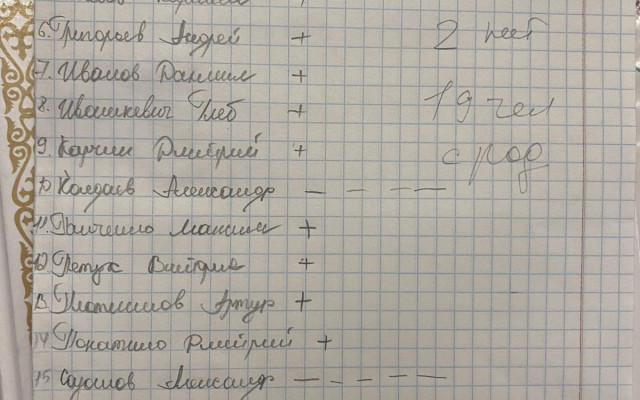 6. Григорьев Андрей + 2 нет
7. Иванов Даниил +
8. Ивашкевич Глеб + 19 чел
9. Карчин Дмитрий + с род
10 Колдаев Александр — — — —
11. Панченко Максим +
12. Петух +
13 Плотников Артур +
14 Покатило Дмитрий +
15 Александр — — — — —